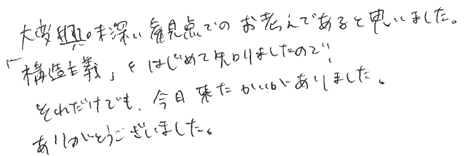 大変興味深い観点でのお考えであると思いました。
「構造主義」をはじめて知りましたので、
それだけでも、今日来たかいがありました。
ありがとうございました。